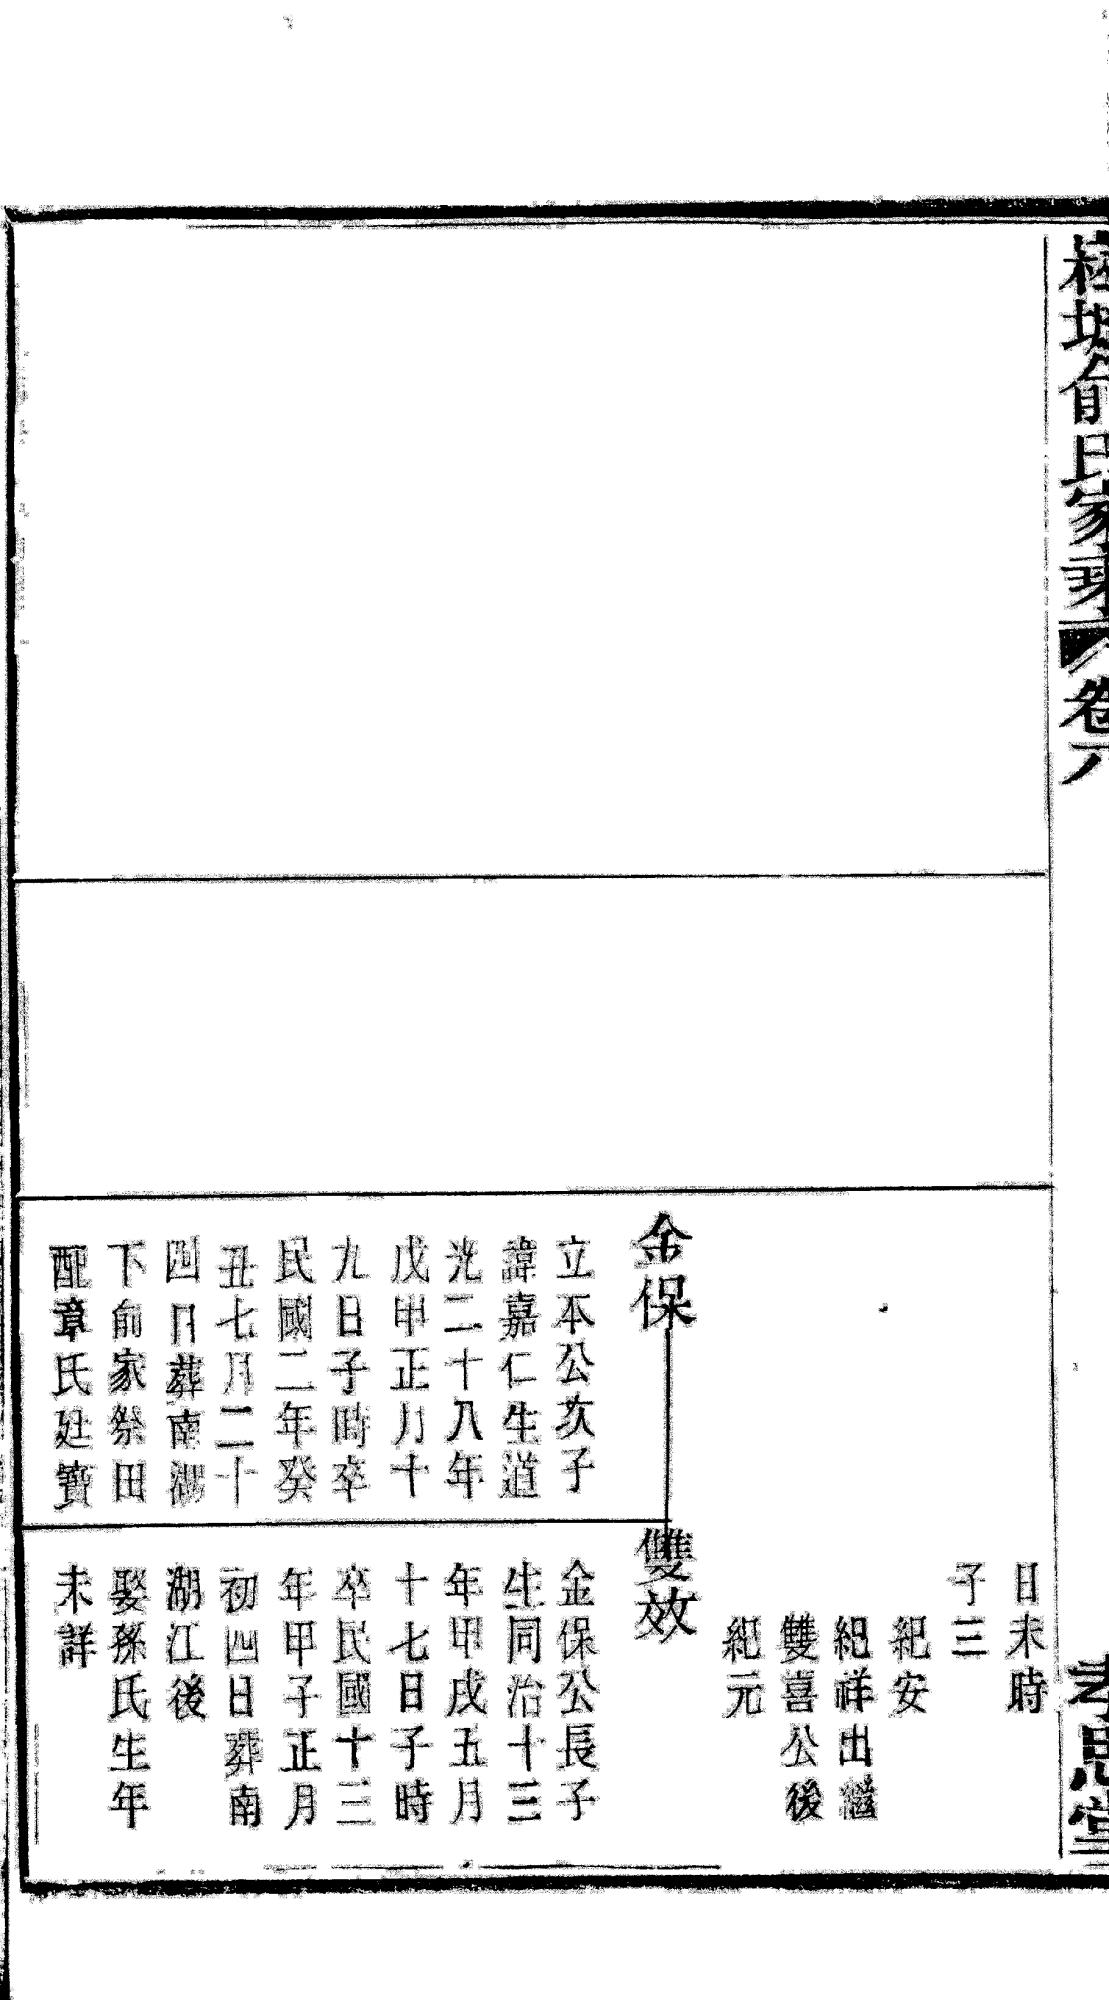 俞氏家乘 卷六
孝思堂
日未時
子三
紀安
紀祥出繼
雙喜公後
紀元
金保
立本公次子
諱嘉仁生道
光二十八年
戊申正月十
九日子時卒
民國二年癸
丑七月二十
四日葬南湖
下俞家祭田
配章氏廷寶
雙效
金保公長子
生同治十三
年甲戌五月
十七日子時
卒民國十三
年甲子正月
初四日葬南
湖江後
娶孫氏生年
未詳